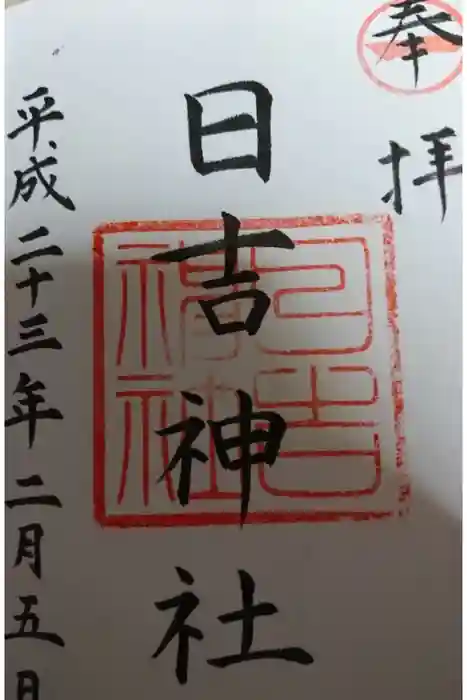 奉拝
日吉神社
日吉神社
平成二十三年二月五日